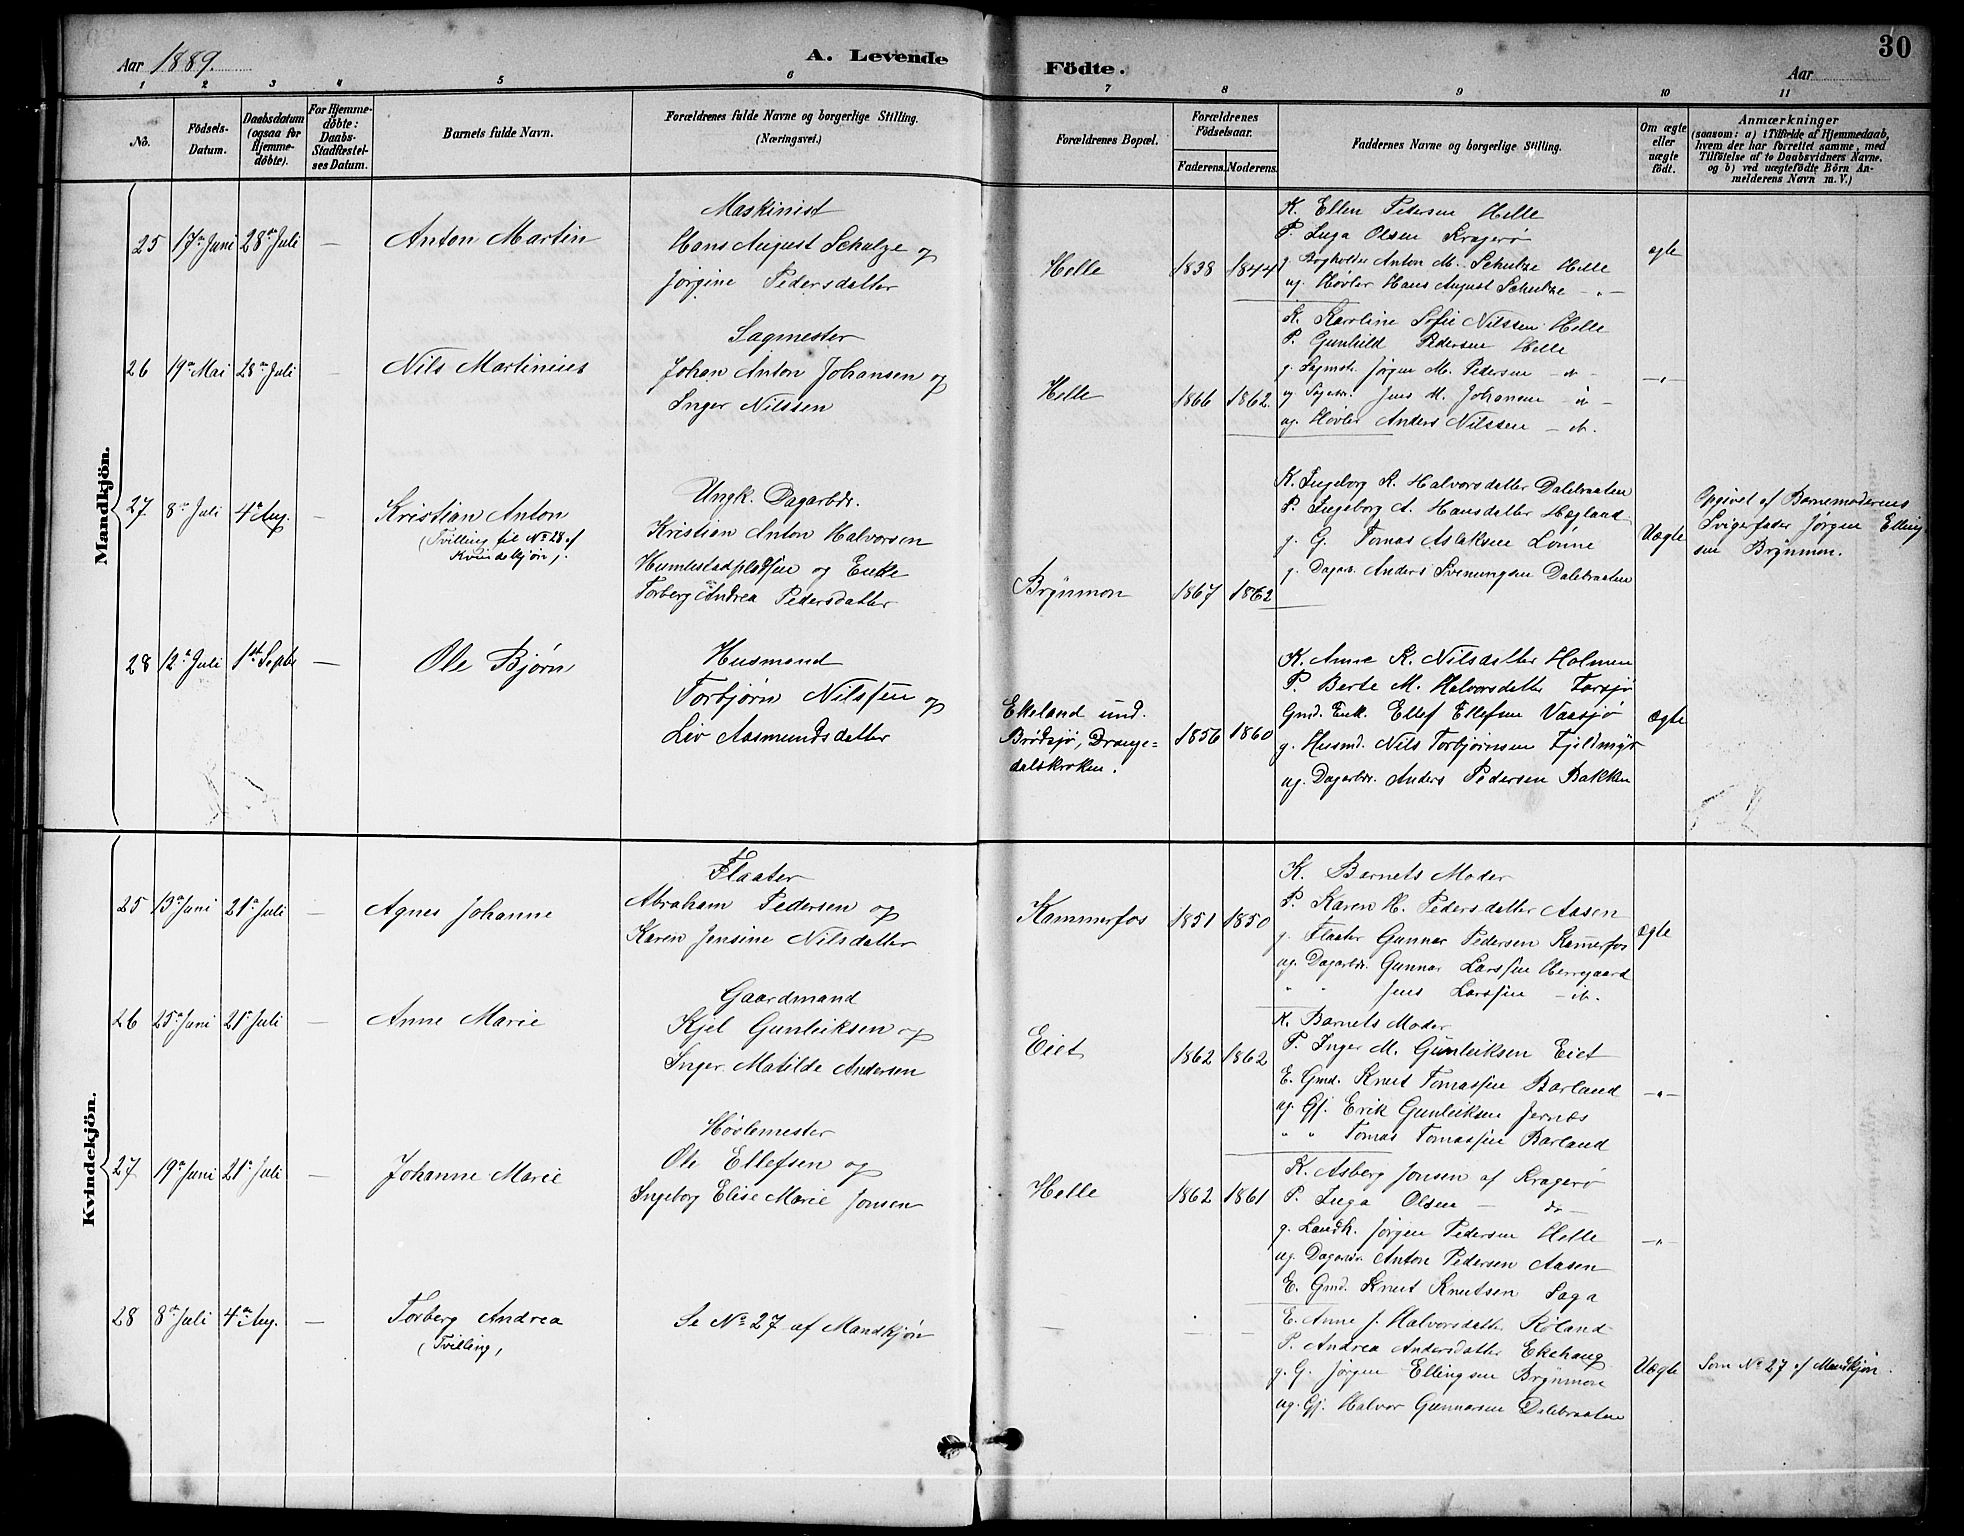 30
Aar 1889.
A. Levende Födte.
Aar
1 2 3 4 5 6 7 8 9 10 11
No.
Födsels-Datum.
Daabsdatum (ogsaa for Hjemme-döbte).
For Hjemme-döbte: Daabs-Stadfæstel-ses Datum.
Barnets fulde Navn.
Forældrenes fulde Navne og borgerlige Stilling.
(Næringsvei.)
Forældrenes Bopæl.
Forældrenes Födselsaar.
Faderens. Moderens.
Faddernes Navne og borgerlige Stilling.
Om ægte eller uægte födt.
Anmærkninger
(saasom: a) i Tilfælde af Hjemmedaab, hvem der har forrettet samme, med Tilföielse af to Daabsvidners Navne. og b) ved uægtefödte Börn Anmelderens Navn m. V.)
Mandkjön.
25 17de Juni 28de Juli — Anton Martin
Maskinist
Hans August Schulze og
Jørgine Pedersdatter
Helle 1838 1844
K. Ellen Pedersen Helle
P. Inga Olsen Kragerø
g. Bogholder Anton M. Schulze Helle
ug. Høvler Hans August Schulze —„—
ægte
26 19de Mai 28de Juli — Nils Martinius
Sagmester
Johan Anton Johansen og
Inger Nilssen
Helle 1866 1862.
K. Karoline Sofie Nilssen Helle
P. Gunhild Pedersen Helle
g. Sagmstr. Jørgen M. Pedersen — „ —
ug. Sagarb. Jens M. Johansen — „ —
ug. Høvler Anders Nilssen — „.
—„—
27 8de Juli 4de Aug. — Kristian Anton
(Tvilling til No 28 af
Kvindekjøn).
Ungk. Dagarbdr.
Kristian Anton Halvorsen
Humlestadpladsen og Enke
Torberg Andrea Pedersdatter
Brynmon 1867 1862
K. Ingeborg K. Halvorsdatter Dalebraaten
P. Ingeborg A. Hansdatter Hægland
g. G. Tomas Aslaksen Lønne
g. Dagarb. Anders Svenungsen Dalebraaten
Uægte
Opgivet af Barnemoderens
Svigerfader Jørgen Elling
sen Brynmon.
28 12te Juli 1ste Septbr — Ole Bjørn
Husmand
Torbjørn Nilssen og
Liv Aasmundsdatter
Ekeland und.
Brødsjø, Drange=
dalskroken.
1856 1860
K. Anne K. Nilsdatter Holmen
P. Berte M. Halvorsdatter
Gmd. Enk. Ellef Ellefsen Vaasjø
g. Husmd. Nils Torbjørnsen Fjeldmyr
ug. Dagarbdr. Anders Pedersen Bakken
ægte
Kvindekjön.
25 13de Juni 21de Juli — Agnes Johanne
Flaater
Abraham Pedersen og
Karen Jensine Nilsdatter
Kammerfos 1851 1850
K. Barnets Moder
P. Karen H. Pedersdatter Aasen
g. Flaater Gunnar Pedersen Kamerfos
ug. Dagarbdr. Gunnar Larssen Herregaard
„ „ Jens Larssen — „.
ægte
26 25de Juni 21de Juli — Anne Marie
Gaardmand
Kjel Gunleiksen og
Inger Matilde Andersen
Eiet 1862 1862
K. Barnets Moder
P. Inger M. Gunleiksen Eiet
E. Gmd. Knut Tomassen Barland
ug. Gj. Erik Gunleiksen Jernæs
„ „ Tomas Tomassen Barland
—„—
27 19de Juni 21de Juli — Johanne Marie
Høvlemester
Ole Ellefsen og
Ingeborg Elise Marie Jonsen
Helle 1862 1861
K. Asberg Jonsen af Kragerø
P. Inga Olsen — do —
g. Landh. Jørgen Pedersen Helle
ug. Dagarbdr. Anton Pedersen Aasen
E. Gmd. Knut Knutsen Saga
—„—
28 8de Juli 4de Aug. — Torberg Andrea
(Tvilling)
Se No 27 af Mandkjøn
— — —
E. Anne J. Halvorsdatter Røland
P. Andrea Andersdatter Ekehaug
g. G. Jørgen Ellingsen Brynmon
ug. Gj. Halvor Gunnarsen Dalebraaten
Uægte
Som No 27 af Mandkjøn.